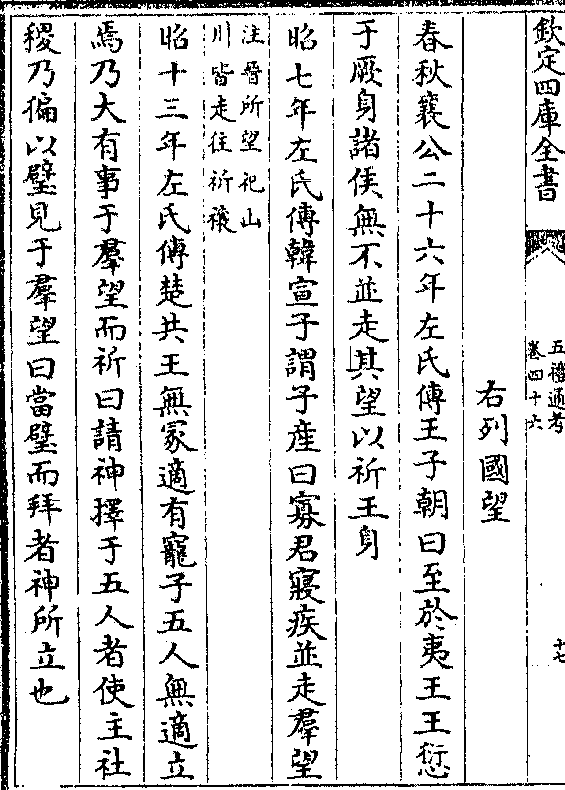 欽定四庫全書
五禮通考
卷四十六
十七
右列國望
春秋襄公二十六年左氏傳王子朝曰至於夷王王愆
于厥身諸侯無不並走其望以祈王身
昭七年左氏傳韓宣子謂子產曰寡君寢疾並走羣望
注晉所望祀山
川皆走往祈禳
昭十三年左氏傳楚共王無冢適有寵子五人無適立
焉乃大有事于羣望而祈曰請神擇于五人者使主社
稷乃徧以璧見于羣望曰當璧而拜者神所立也